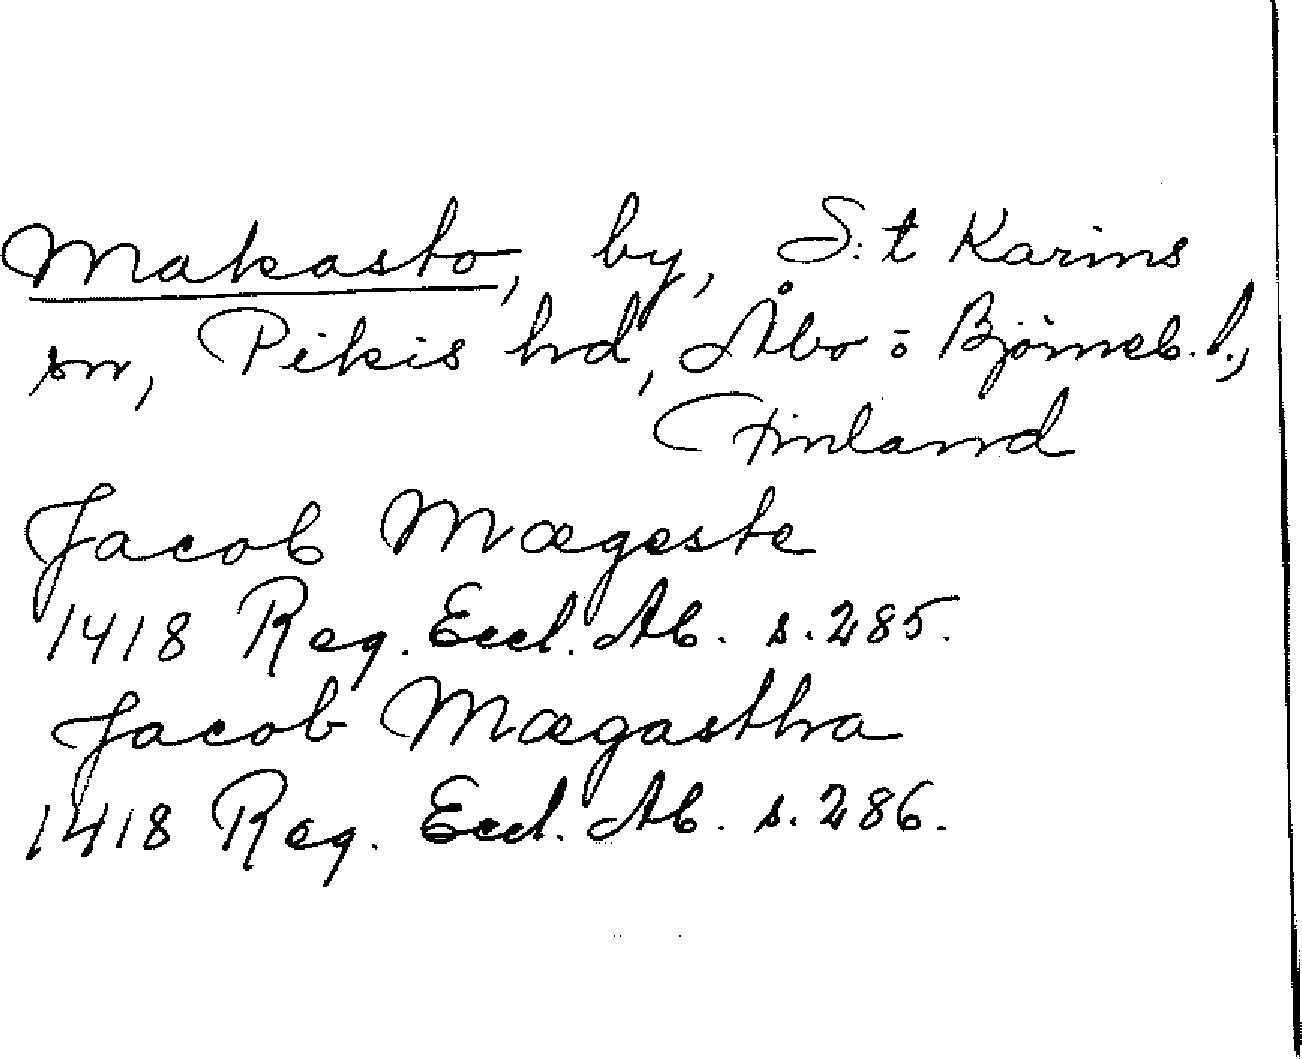 Makasto, by, S:t Karins
sn, Pikis hd, Åbo o Björneb. l.,
Finland
Jacob Mægeste
1418 Reg. Eccl. Ab. s. 285.
Jacob Mægasthra
1418 Reg. Eccl. Ab. s. 286.